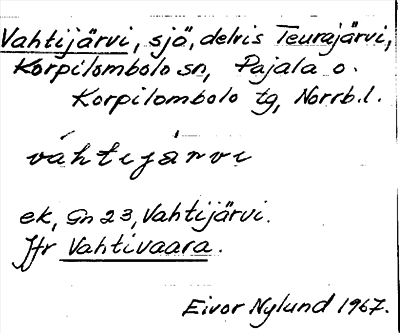 Vahtijärvi, sjö, delvis Teurajärvi,
Korpilombolo sn, Pajala o.
Korpilombolo tg, Norrb.l.
váhtijàrvi
ek, Gn 23, Vahtijärvi.
Jfr Vahtivaara.
Eivor Nylund 1967.